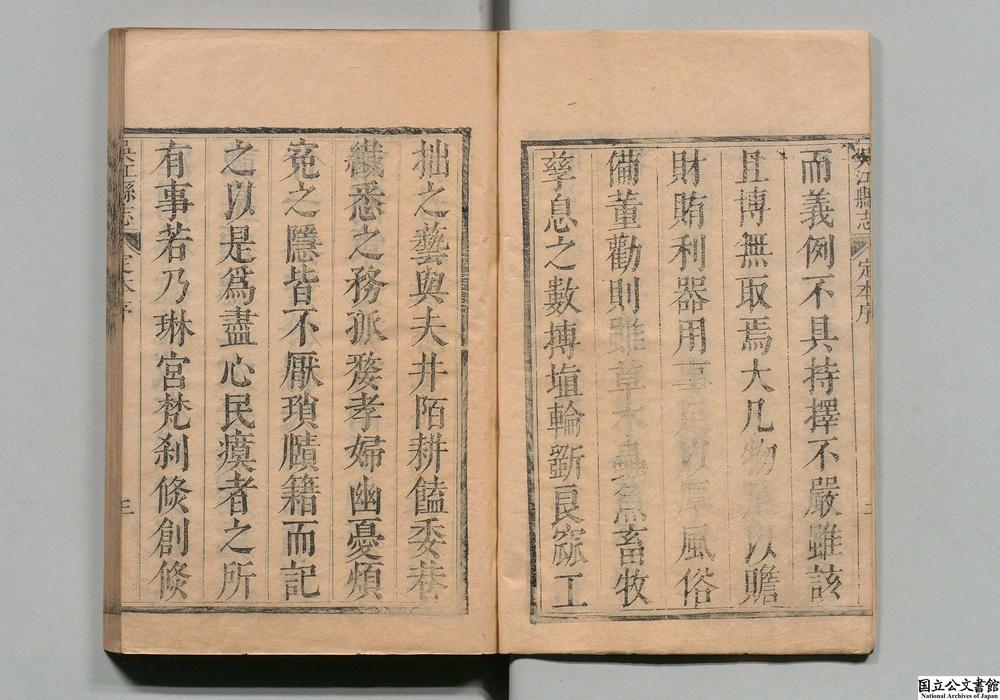 吳江縣志 定本序
而義例不具持擇不嚴雖該
且博無取焉大凡物足以贍
財賄利器用事足以厚風俗
備董勸則雖草木蟲魚畜牧
孳息之數摶埴輪斵良窳工
拙之藝與夫井陌耕饁委巷
纖悉之務孤嫠孝婦幽憂煩
寃之隱皆不厭瑣賾籍而記
之以是爲盡心民瘼者之所
有事若乃琳宮梵刹倐創倐
吳江縣志 定本序 三
国立公文書館
National Archives of Japan